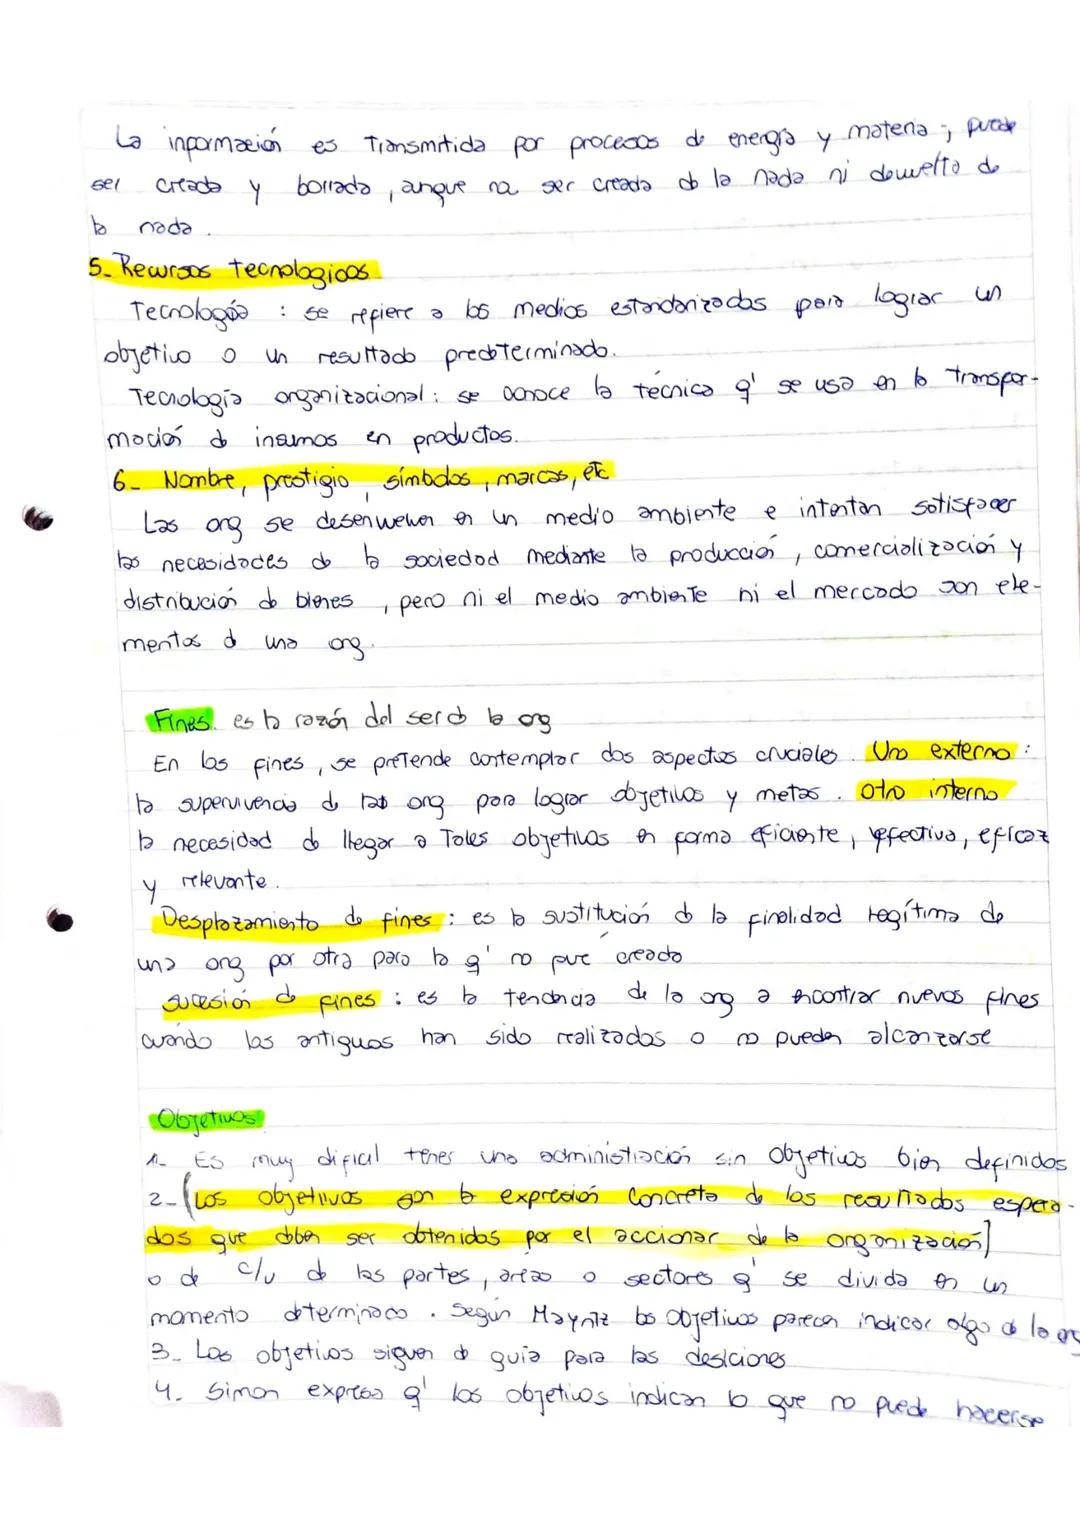 La información es transmitida por procesos de energía y materia, puede
ser creada y borrada, aunque no ser creada d la nada ni devuelta de
la nada.
5_ Recursos tecnologicos
Tecnología : se refiere a los medios estandarizados para lograr un
objetivo o un resultado predeterminado.
Tecnología organizacional: se conoce la técnica q' se usa en la transfor-
mación d insumos en productos.
6_ Nombre, prestigio, símbolos, marcas, etc
Las org se desenvuelven en un medio ambiente e intentan satisfacer
las necesidades de la sociedad mediante la producción, comercialización y
distribución de bienes, pero ni el medio ambiente ni el mercado son ele-
mentos d una org.
Fines. es la razón del ser d la org
En los fines, se pretende contemplar dos aspectos cruciales. Uno externo :
la supervivencia de las org para lograr objetivos y metas. Otro interno
la necesidad de llegar a Tales objetivos en forma eficiente, efectiva, eficaz
y relevante.
Desplazamiento de fines : es la sustitución d la finalidad legítima de
una org por otra para la q' no fue creada
sucesión de fines : es la tendencia de la org a encontrar nuevos fines
cuando los antiguos han sido realizados o no pueden alcanzarse
Objetivos
1_ Es muy dificil tener una administración sin objetivos bien definidos
2_ (Los objetivos son la expresión concreta de los resultados espera-
dos que deben ser obtenidos por el accionar de la organización]
o de c/u d las partes, áreas o sectores q' se divida en un
momento determinado. Según Mayntz los objetivos parecen indicar algo d la org
3_ Los objetivos siguen de guía para las desiciones
4_ Simon expresa q' los objetivos indican lo que no puede hacerse